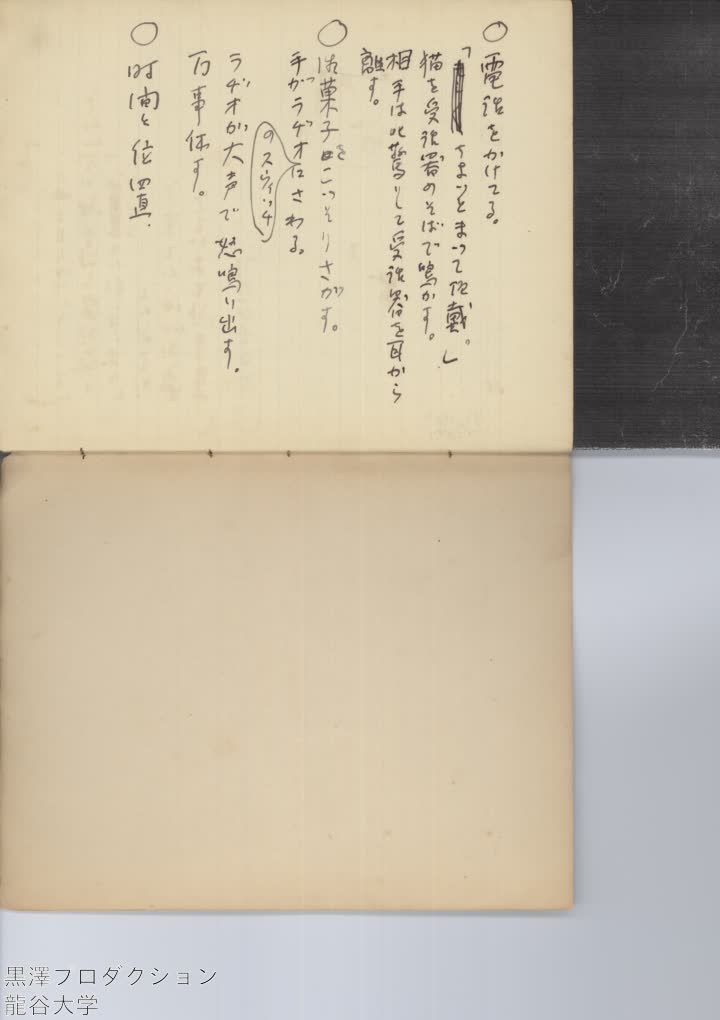 ○ 電話をかけてる。
「ちょいとまって頂戴。」
猫を受話器のそばで鳴かす。
相手は吃驚りして受話器を耳から
離す。
○ お菓子をこっそりさがす。
手がラヂオのスウィッチにさわる。
ラヂオが大声で怒鳴り出す。
万事休す。
○ 時間と位置.
黒澤プロダクション
龍谷大学